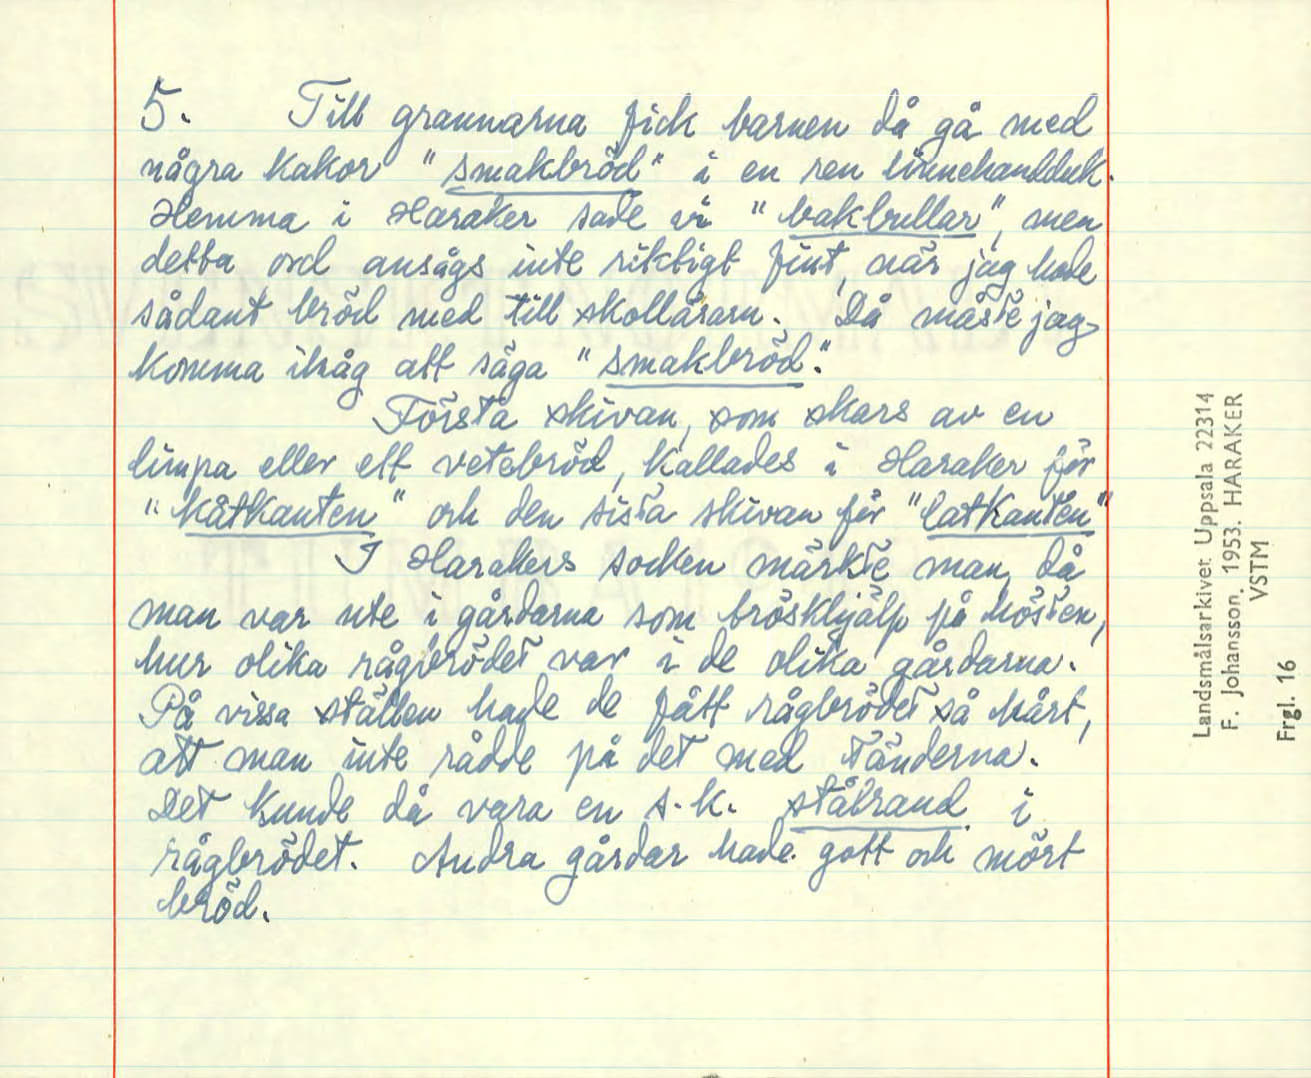 5. Till grannarna fick barnen då gå med
några kakor "smakbröd" i en ren linnehandduk.
Hemma i Haraker sade vi "bakbullar", men
detta ord ansågs inte riktigt fint, när jag hade
sådant bröd med till skollärarn. Då måste jag
komma ihåg att säga "smakbröd."
Första skivan, som skars av en
limpa eller ett vetebröd, kallades i Haraker för
"kåtkanten" och den sista skivan för "latkanten"
I Harakers socken märkte man, då
man var ute i gårdarna som tröskhjälp på hösten,
hur olika rågbrödet var i de olika gårdarna.
På vissa ställen hade de fått rågbrödet så hårt,
att man inte rådde på det med tänderna.
Det kunde då vara en s.k. stålrand i
rågbrödet. Andra gårdar hade gott och mört
bröd.
Landsmålsarkivet Uppsala 22314
F. Johansson. 1953. HARAKER
VSTM
Frgl. 16